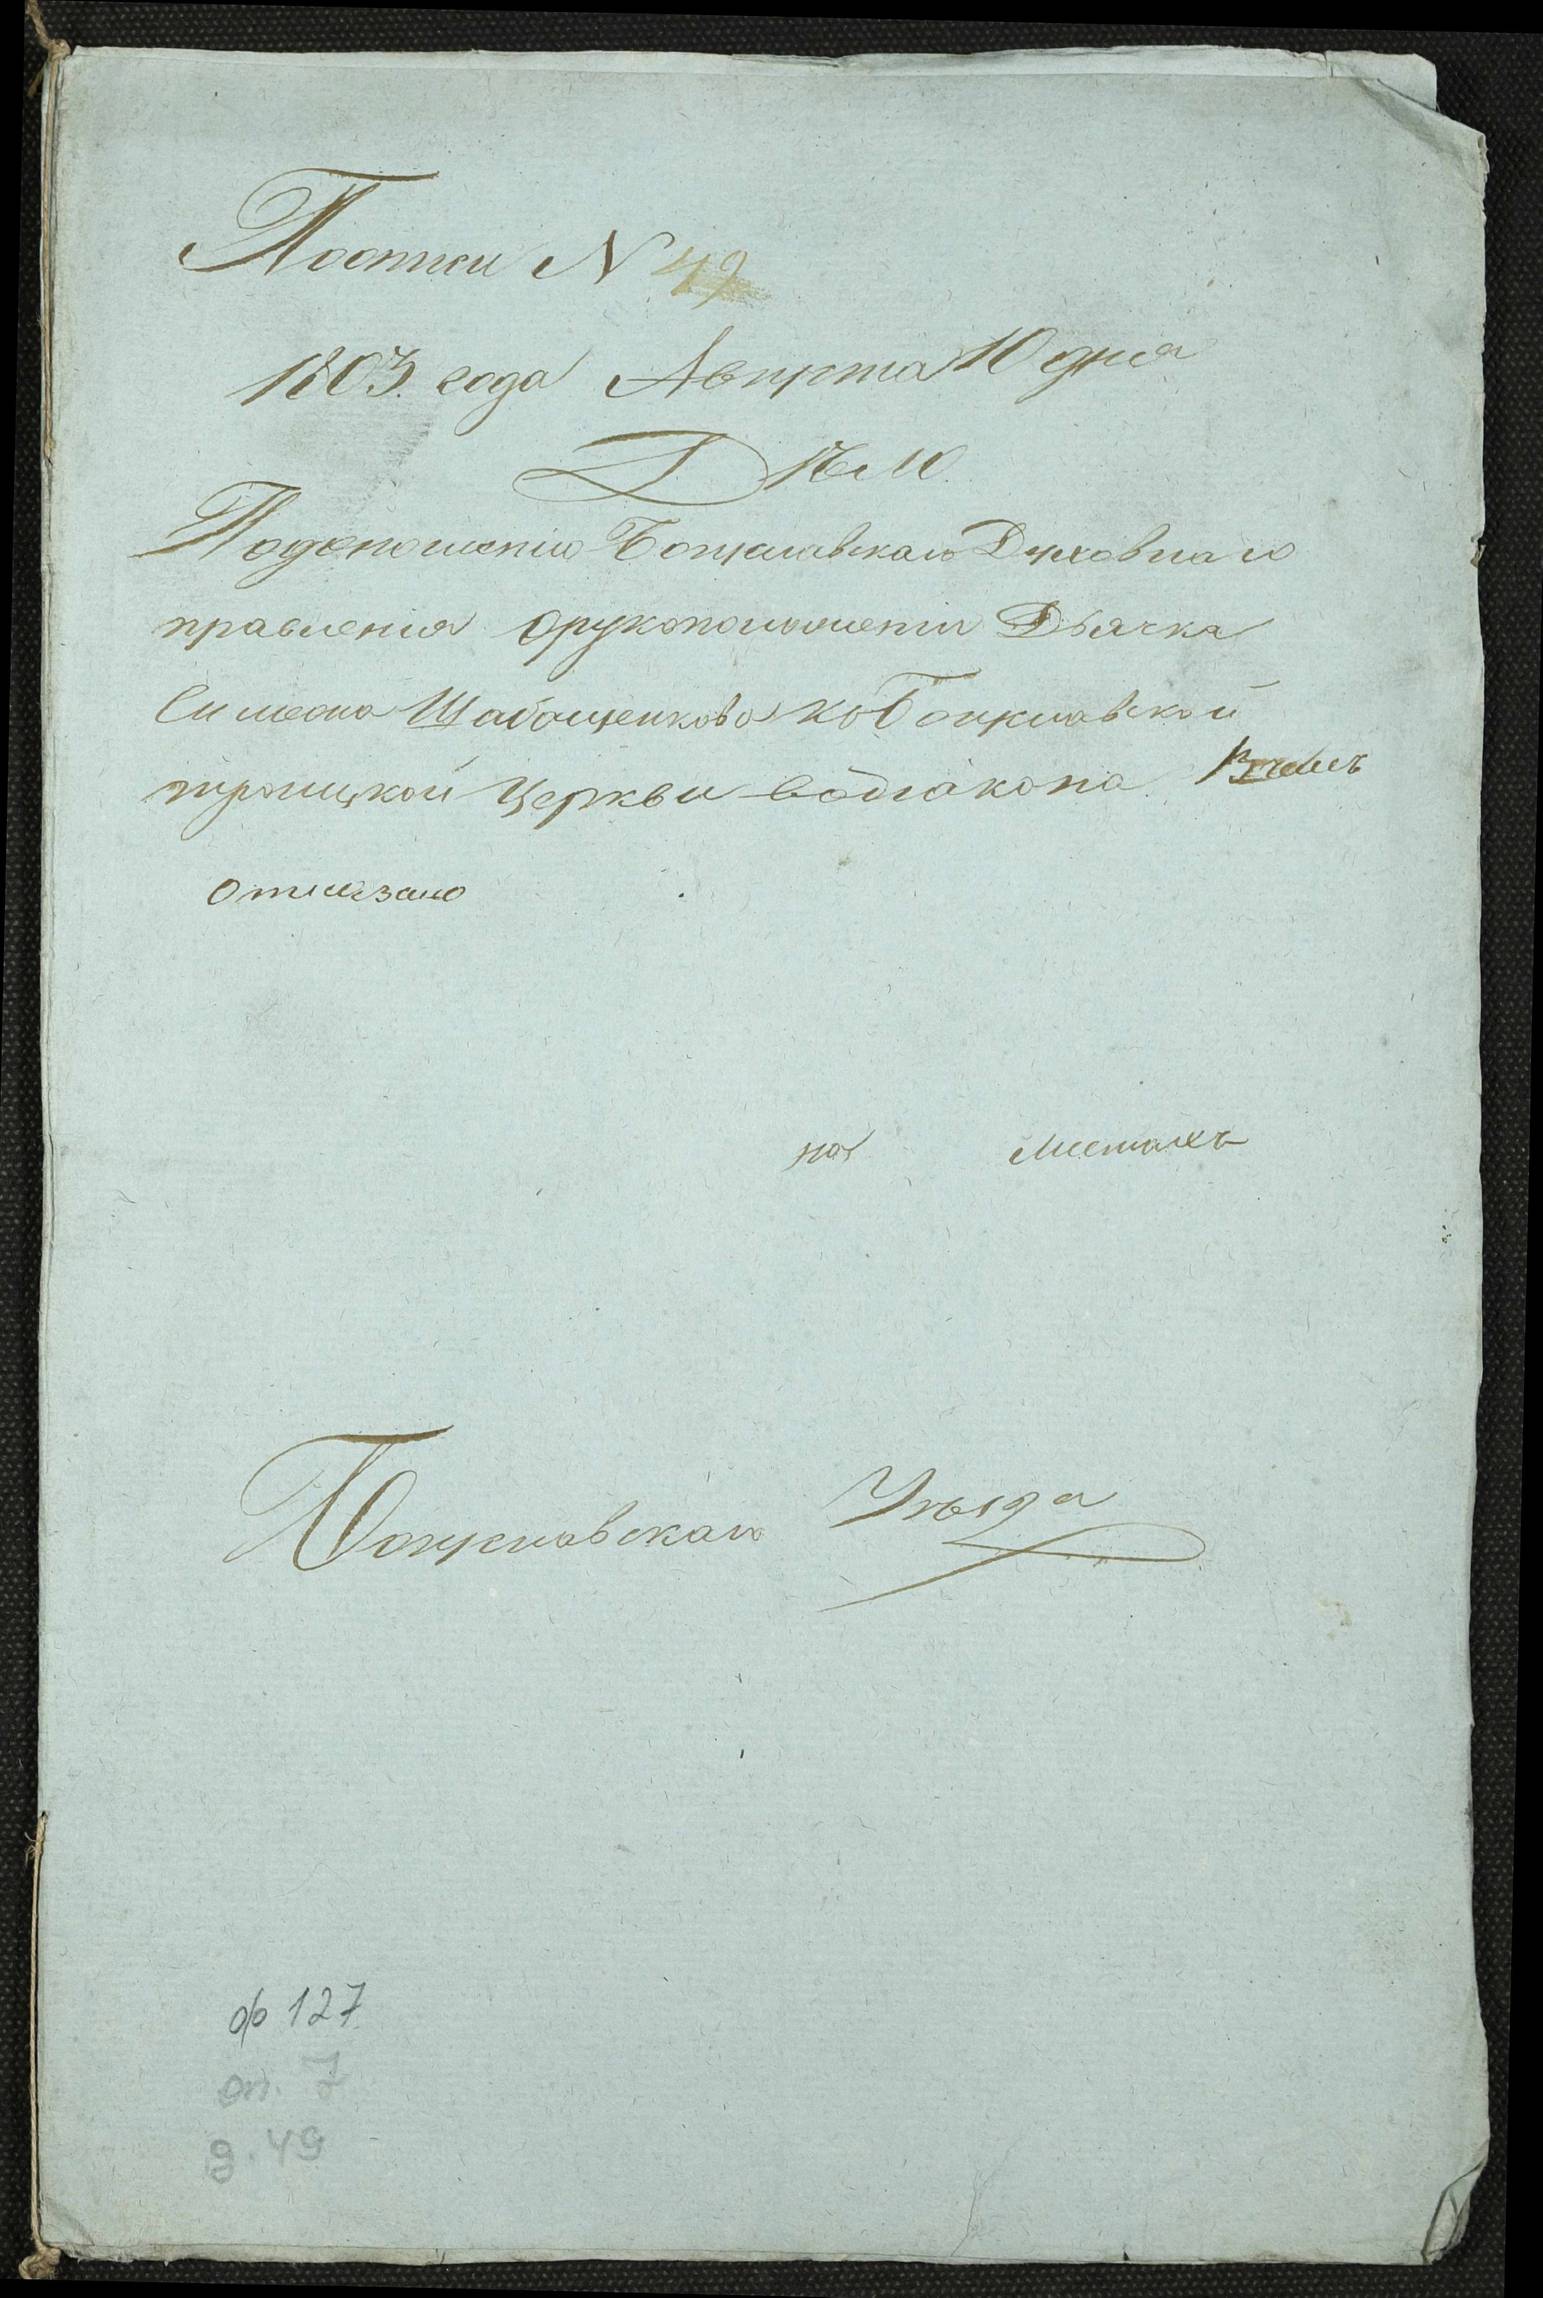 Поописи N 49
1803. года Августа 10 дня
Дѣло
Подоношенію Богуславскаго Духовнаго
правленія орукоположеніи Дьячка
Симеона Шабашенкова кобогуславской
троицкой Церкви водіакона. В чемъ
отказано
на листахъ
Богуславскаго Уѣзда
ф 127
оп. 7
д. 49